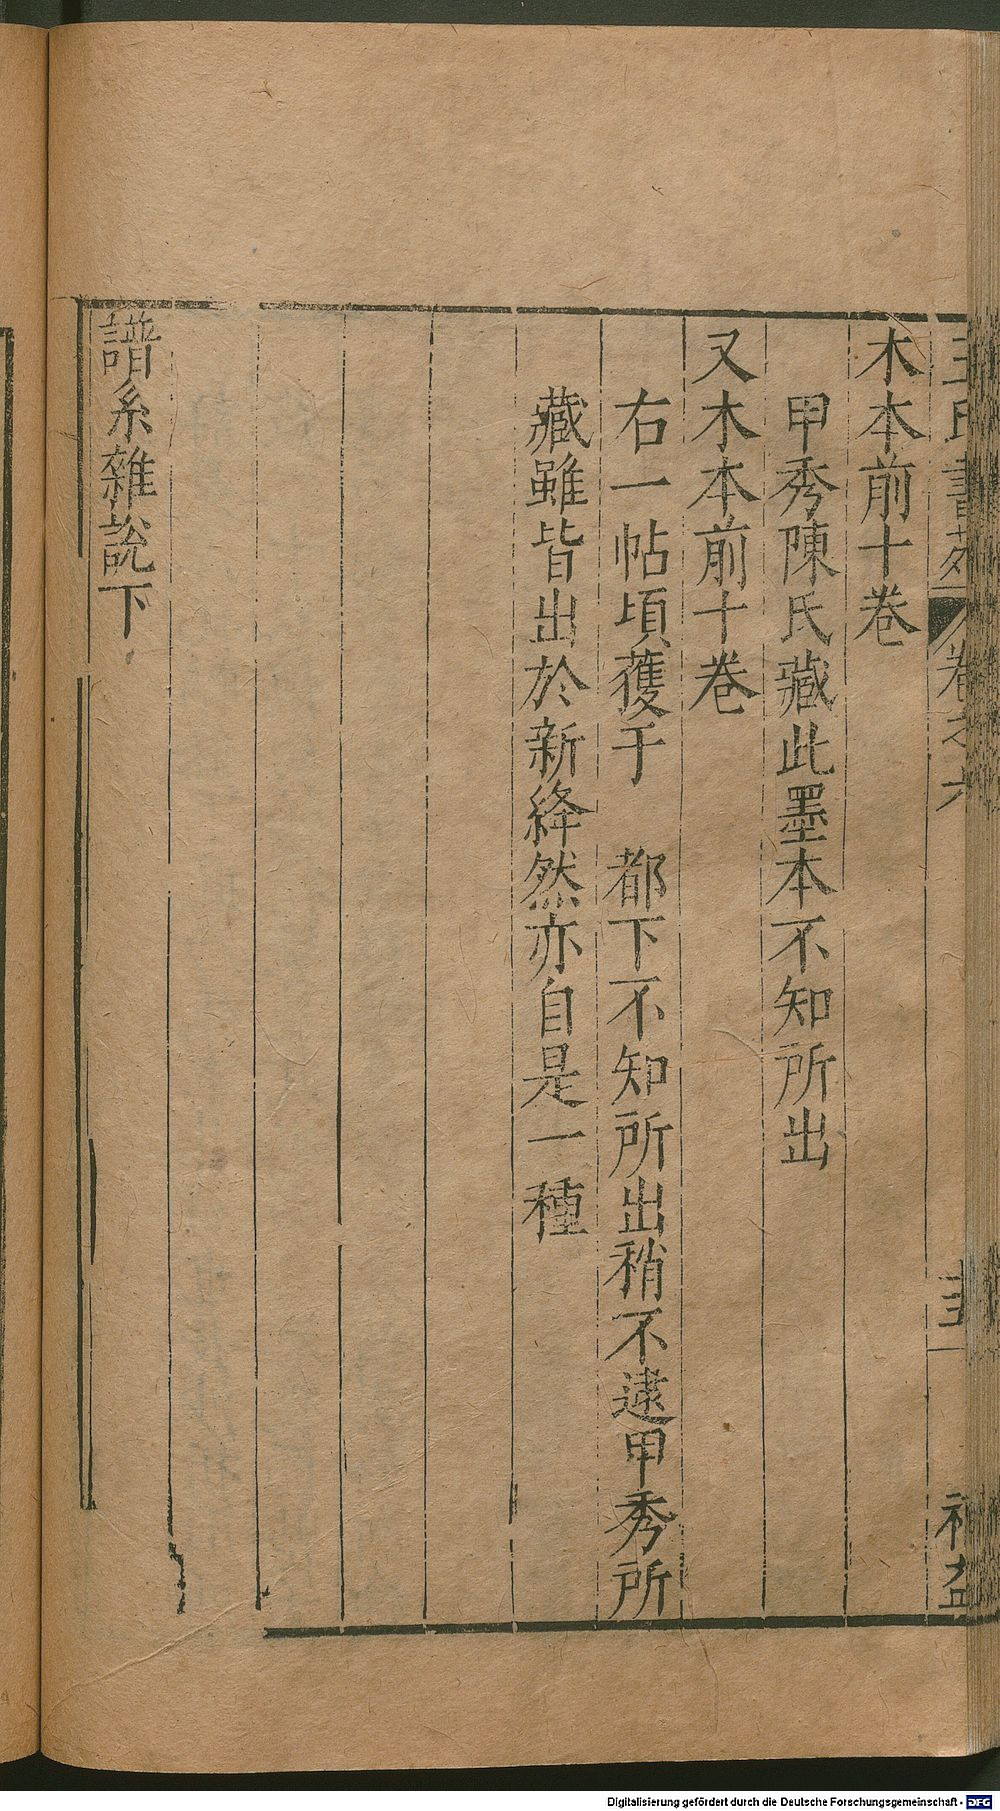 王氏書苑 卷之六
木本前十卷
甲秀陳氏藏此墨本不知所出
又木本前十卷
右一帖頃獲于 都下不知所出稍不逮甲秀所
藏雖皆出於新絳然亦自是一種
譜系雜說下
Digitalisierung gefördert durch die Deutsche Forschungsgemeinschaft - DFG